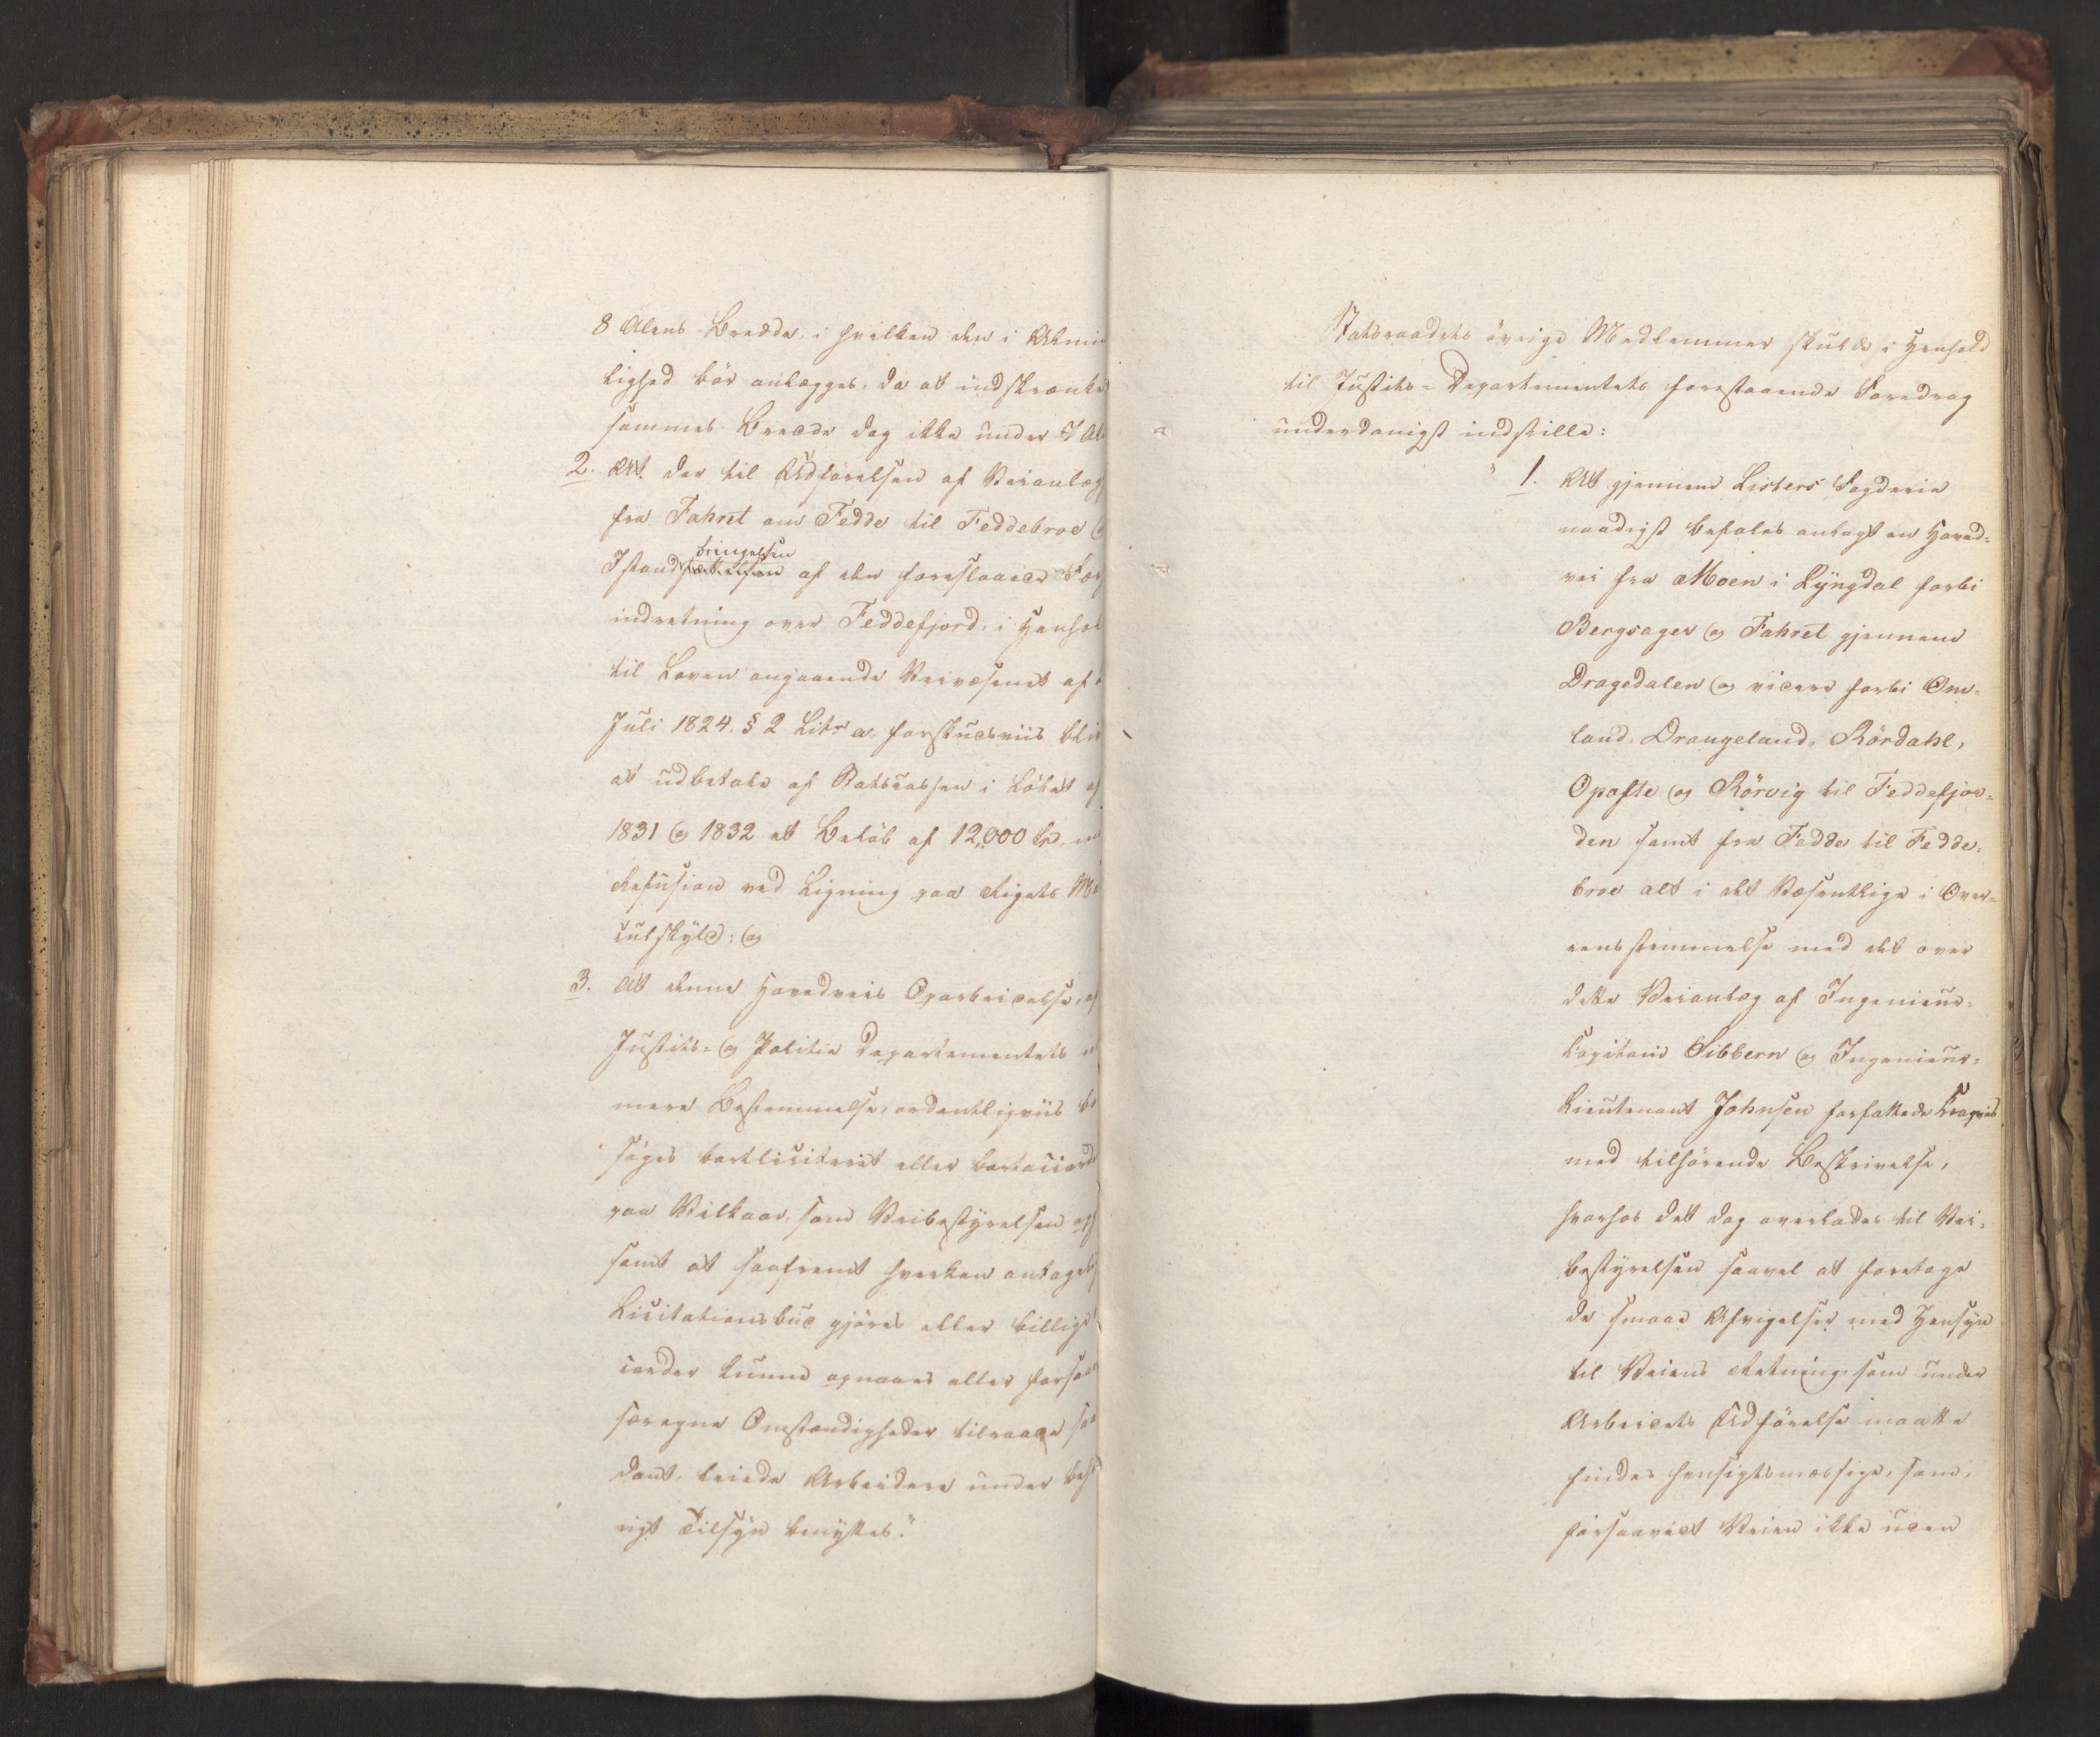 8 Alens Bredde, i hvilken den i Almin
lighed bør anlægges, da at indskrænke
sammes Brede dog ikke under 7 Al
2. At der til Udførelsen af Veianlæg
fra Fahret om Fedde til Feddebroe
bringelsen
Istandsættelsen af den foreslaaede Fær
indretning over Feddefjord, i Henhol
til Loven angaaende Veivæsenet af
Juli 1824, § 2 Litr a, forskudsviis bliv
at udbetale af Statscassen i Løbet af
1831 og 1832 et Beløb af 12,000 Spd, m
Refusion ved Ligning paa Rigets Ma
culskyld; og
3. At denne Hovedveis Oparbeidelse, ef
Justits- og Politie Departementets n
mere Bestemmelse, ordentligviis be
søges bortliciteret eller bortaccorde
paa Vilkaar, som Veibestyrelsen
samt at saafremt hverken antagel
Licitationsbud gjøres eller billige
corder kunne opnaaes eller forsaa
særegne Omstændigheder tilraade saa
dant, leiede Arbeidere under
rigt Tilsyn benyttes."
Statsraadets øvrige Medlemmer skulde i Henhold
til Justits-Departementets forestaaende Foredrag
underdanigst indstille:
" 1. At gjennem Listers Fogderie
naadigst befales anlagt en Hoved-
vei fra Moen i Lyngdal forbi
Bergsager og Fahret gjennem
Dragedalen og videre forbi Om-
land, Drangeland, Rørdahl,
Opofte og Rørvig til Feddefjor-
den samt fra Fedde til Fedde-
broe alt i det Væsentlige i Over-
eensstemmelse med det over
dette Veianlæg af Ingenieur-
Capitain Sibbern og Ingenieur-
Lieutenant Johnsen forfattede Croquis
med tilhørende Beskrivelse,
hvorhos det dog overlades til Vei-
bestyrelsen saavel at foretage
de smaae Afvigelser med Hensyn
til Veiens Retning, som under
Arbeidets Udførelse maatte
findes hensigtsmæssige, som,
forsaavidt Veien ikke uden